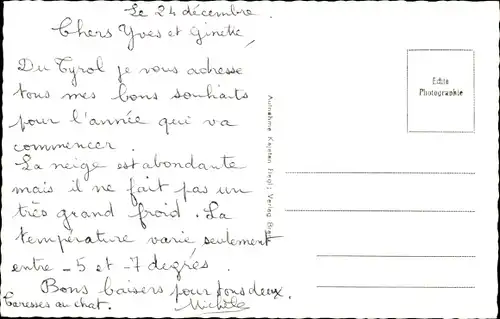 Le 24 décembre.
Chers Yves et Ginette,
Du Tyrol je vous adresse
tous mes bons souhaits
pour l'année qui va
commencer.
La neige est abondante
mais il ne fait pas un
très grand froid. La
température varie seulement
entre -5 et -7 degrés.
Bons baisers pour tous deux.
Caresses au chat.
Michèle
Echte
Photographie
Aufnahme Kajetan